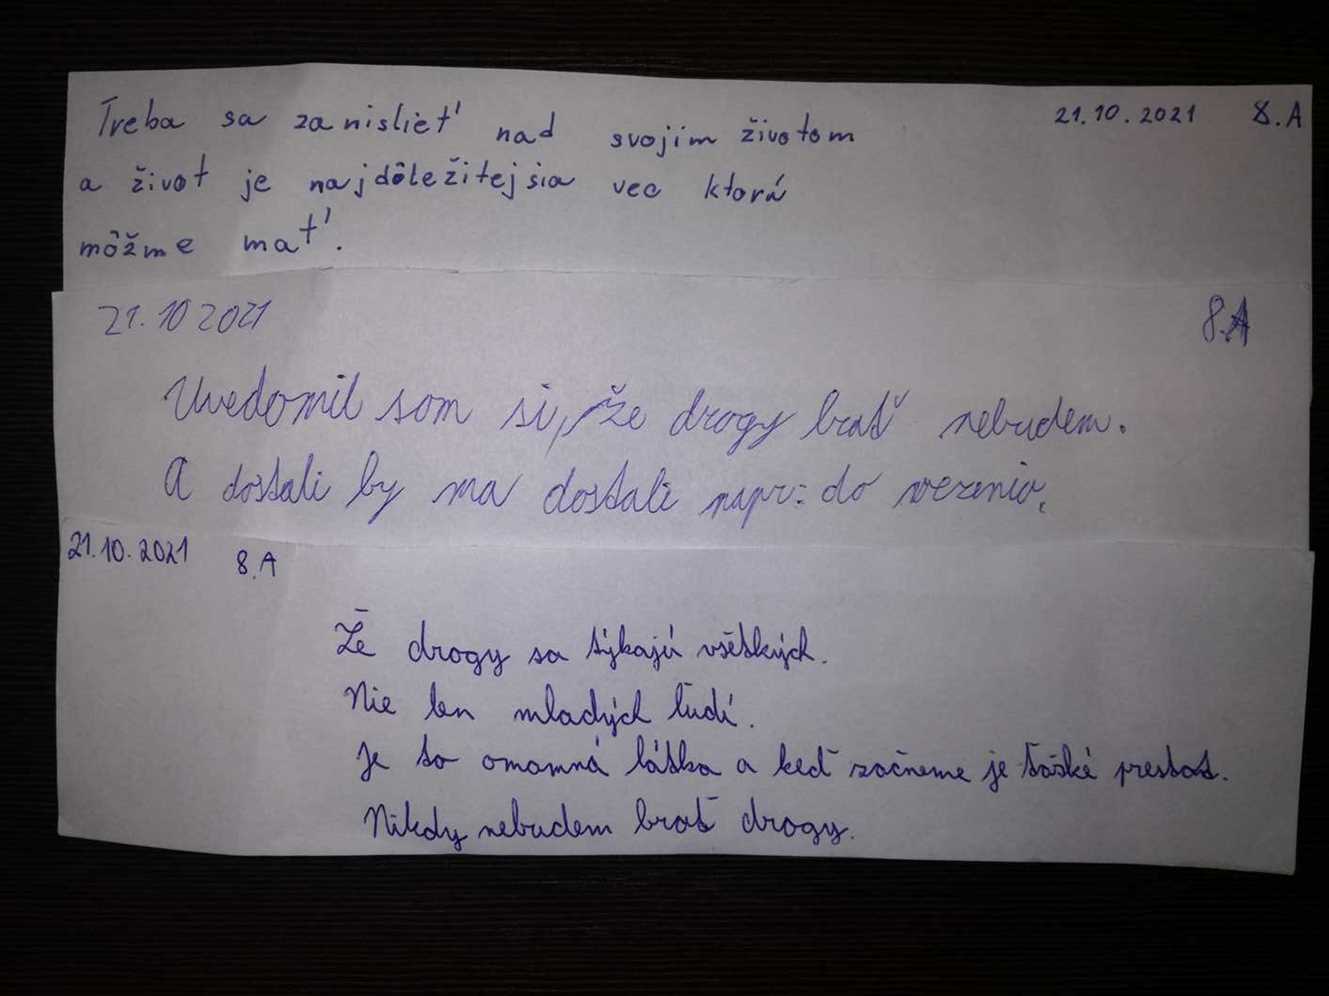 21.10.2021 8.A
Treba sa zanislieť nad svojim životom
a život je najdôležitejsia vec ktorá
môžme mať.
21.10 2021 8.A
Uvedomil som si, že drogy brať nebudem.
A dostali by ma dostali napr: do vezenia.
21.10.2021 8.A
Že drogy sa týkajú všetkých.
Nie len mladých ľudí.
Je to omamná látka a keď začneme je ťaské prestat.
Nikdy nebudem brať drogy.